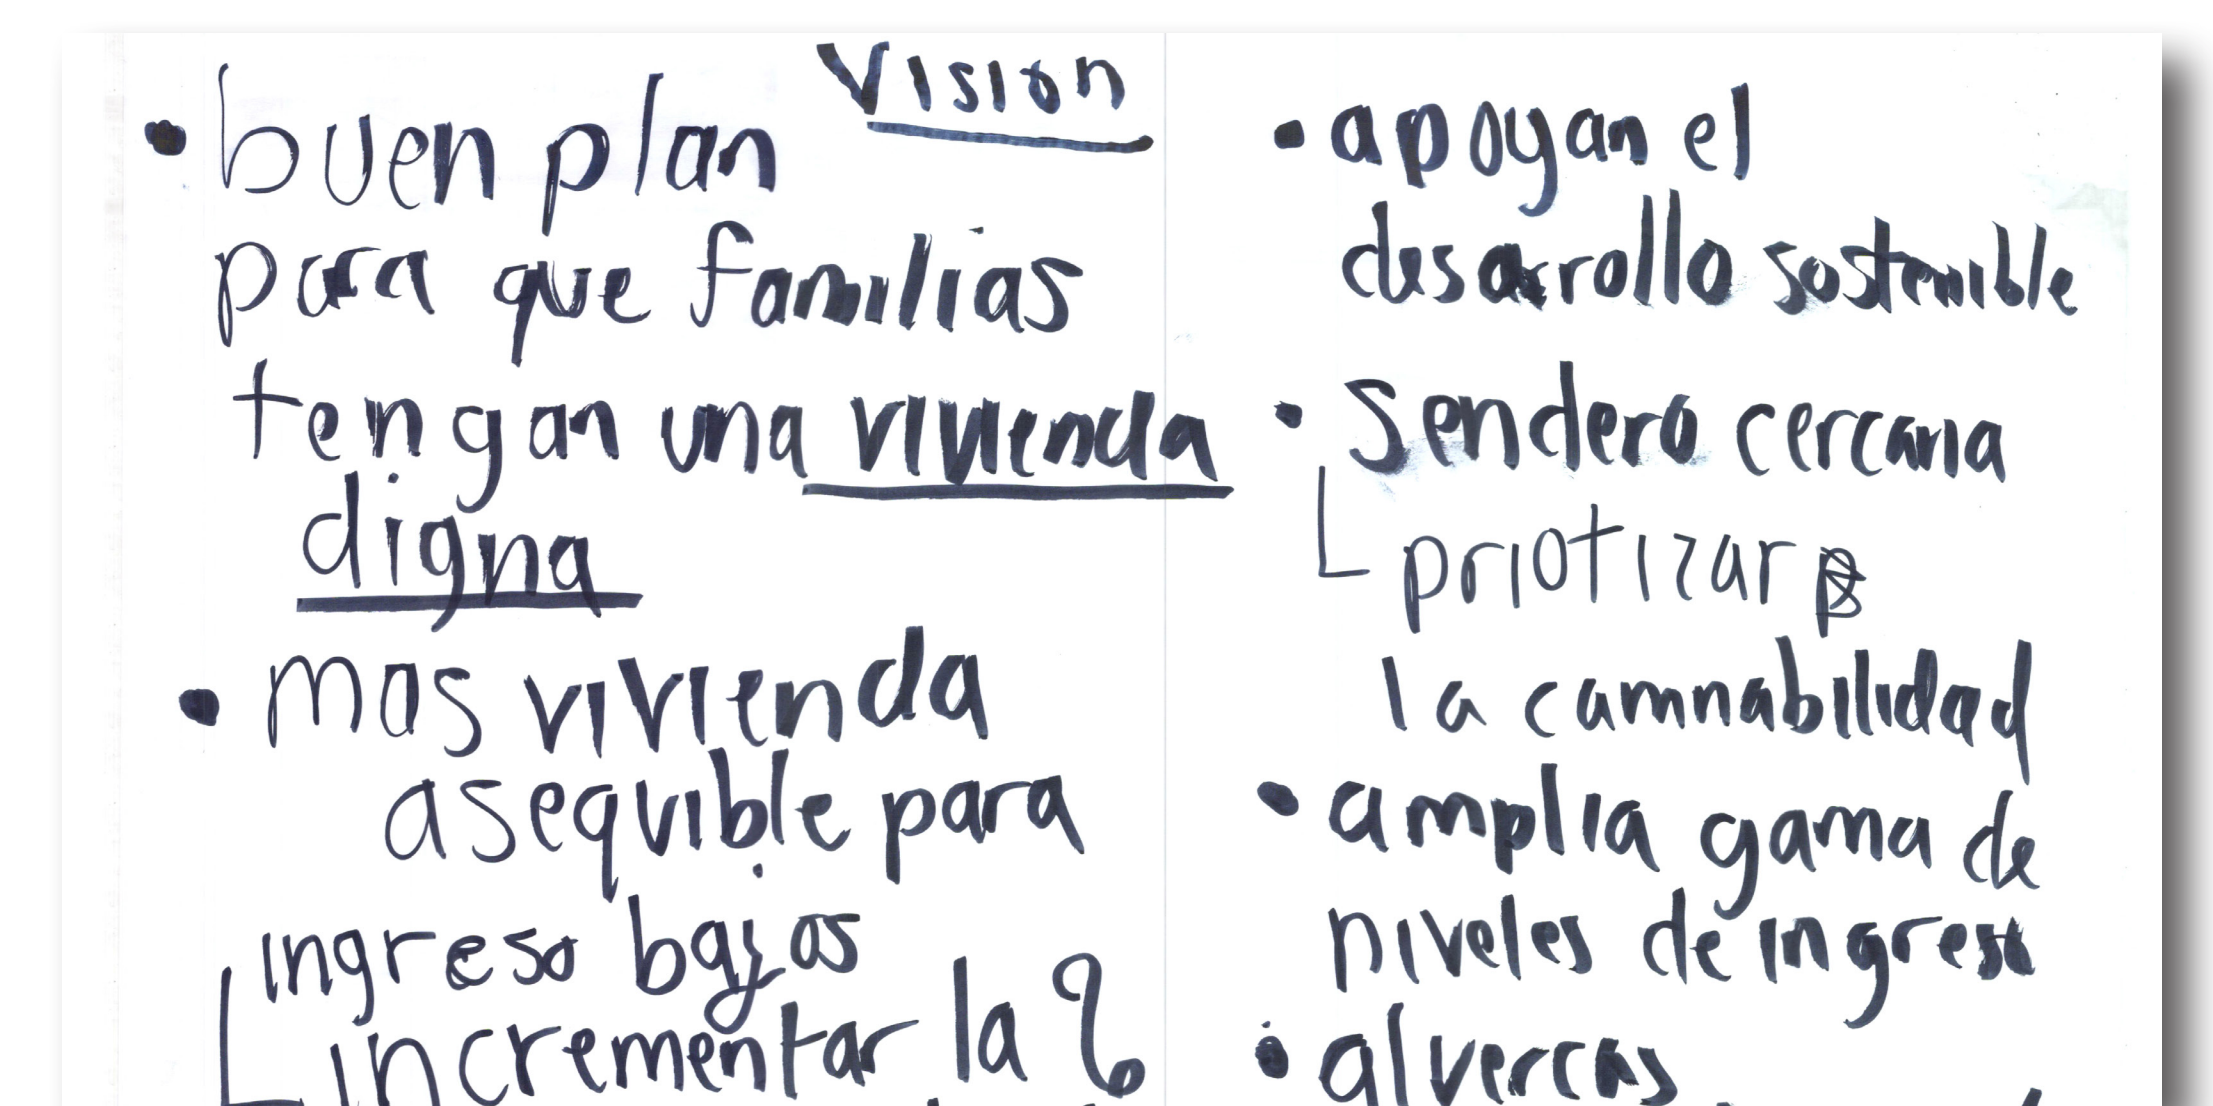 Vision
• buen plan
para que familias
tengan una vivienda
digna
• mas vivienda
asequible para
ingreso bajos
incrementar la
• apoyan el
desarrollo sostenible
• Sendero cercana
priotizar
la camnabilidad
• amplia gama de
niveles de ingreso
• alvercas